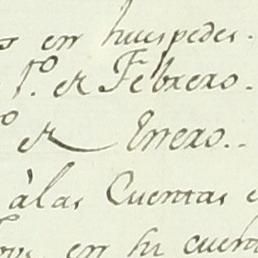 en huespedes.
1.º de Febrero.
de Enero..
à las Cuentas
en su cuenta